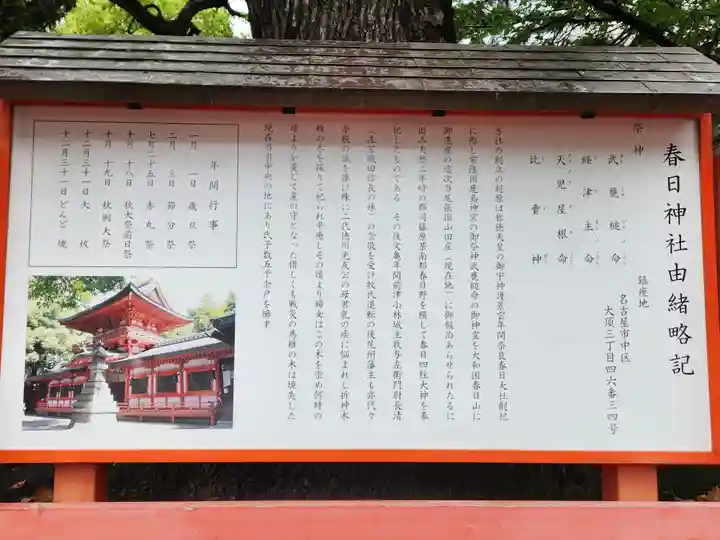 春日神社由緒略記
鎮座地
名古屋市中区
大須三丁目四六番三四号
祭神
武甕槌命
経津主命
天児屋根命
比賣神
当社の創立の起原は称徳天皇の御宇神護景雲年間奈良春日大社創祀
に際し常陸国鹿島神宮の御祭神武甕槌命の御神霊を大和国春日山に
御遷座の途次当尾張国山田庄(現在地)に御駐泊あらせられたるに
因み天暦二年時の郡司藤原某南都春日野を模して春日四柱大神を奉
祀したものである その後文亀年間前津小林城主牧与左衛門尉長清
(正室織田信長の妹)の崇敬を受け牧氏退転の後尾州藩主も亦代々
崇敬の誠を捧げ殊に二代徳川光友公の母君乳の疾に悩まれし折神木
椎の実を採りて祀られ平癒しその頃より婦女はこの木を崇め何時の
頃よりか重して産の守となった惜しくも戦災の為椎の木は焼失した
現在当市中央の地にあり氏子数五千余戸を擁す
年間行事
一月 一日 歳旦祭
二月 三日 節分祭
七月二十五日 赤丸祭
十月 十八日 秋大祭前日祭
十月 十九日 秋例大祭
十二月三十一日 大祓
十二月三十一日 どんど焼